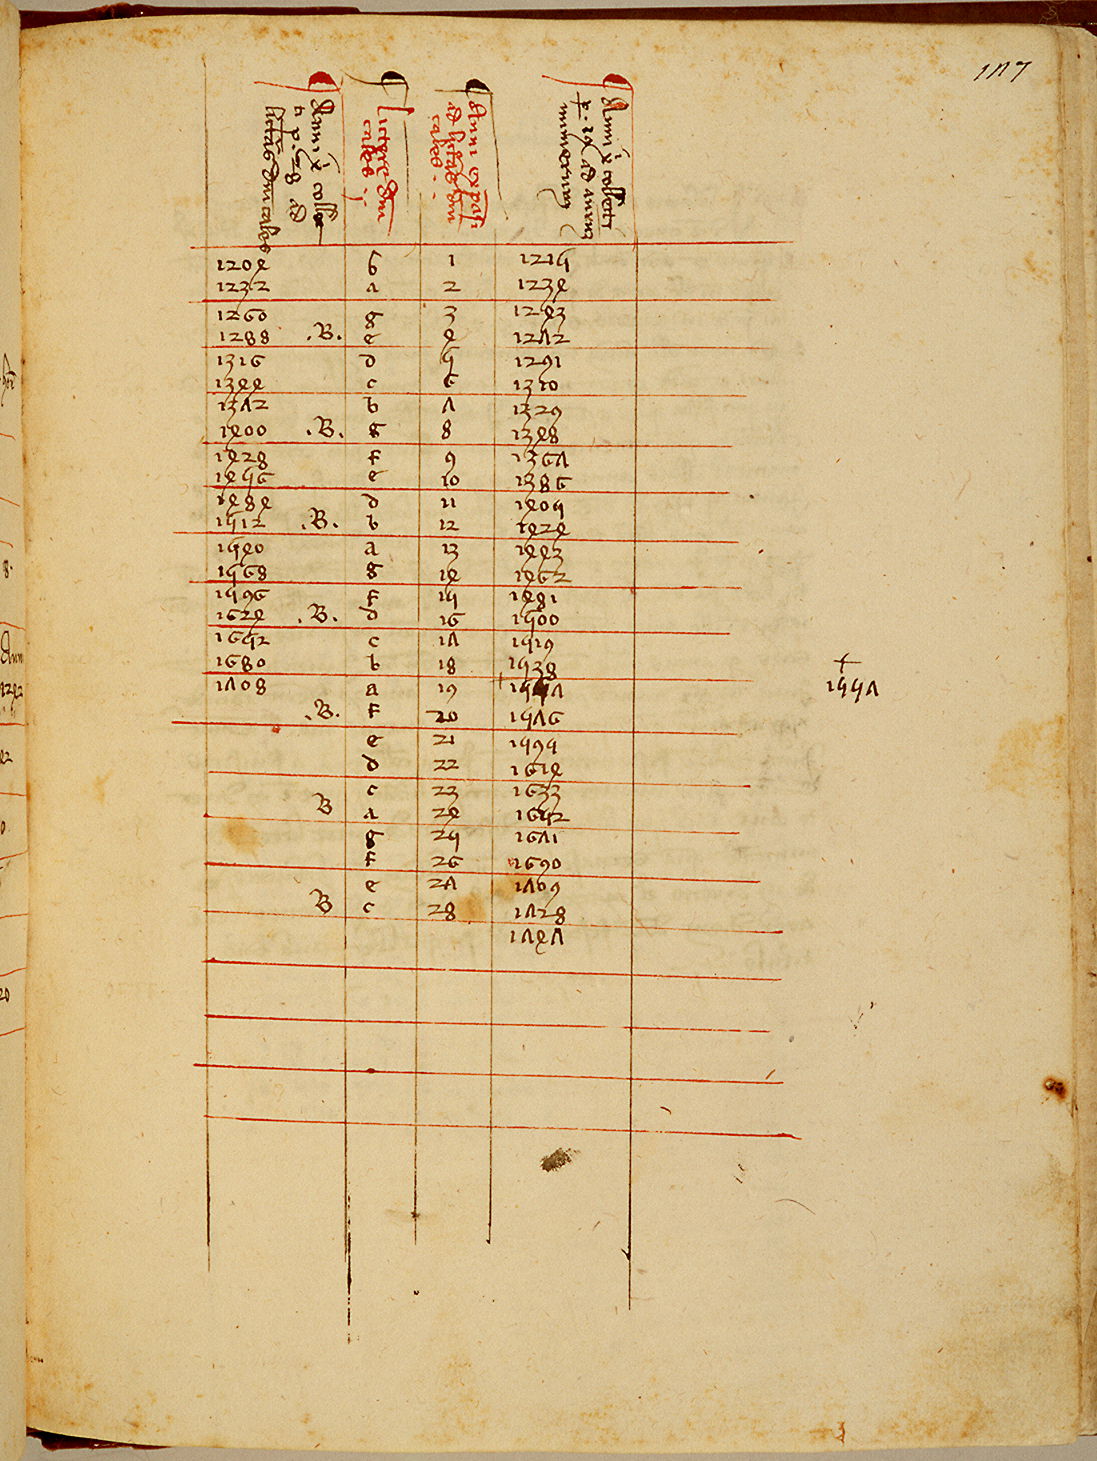 Anni xi colle
ti p. 28 ad
litteras dnicales
littere dni
cales.
Anni expasi
ad litteras dni
cales.
Anni xi collecti
p. 19 ad aureum
numerum
1204 b 1 1215
1232 a 2 1234
1260 g 3 1243
1288 .B. e 4 1272
1316 d 5 1291
1344 c 6 1310
1372 b 7 1329
1400 .B. g 8 1348
1428 f 9 1367
1456 e 10 1386
1484 d 11 1405
1512 .B. b 12 1424
1540 a 13 1443
1568 g 14 1462
1596 f 15 1481
1624 .B. d 16 1500
1652 c 17 1519
1680 b 18 1538
1708 a 19 + 1557
+
1557
.B. f 20 1576
e 21 1595
d 22 1614
c 23 1633
B a 24 1652
g 25 1671
f 26 1690
e 27 1709
B c 28 1728
1747